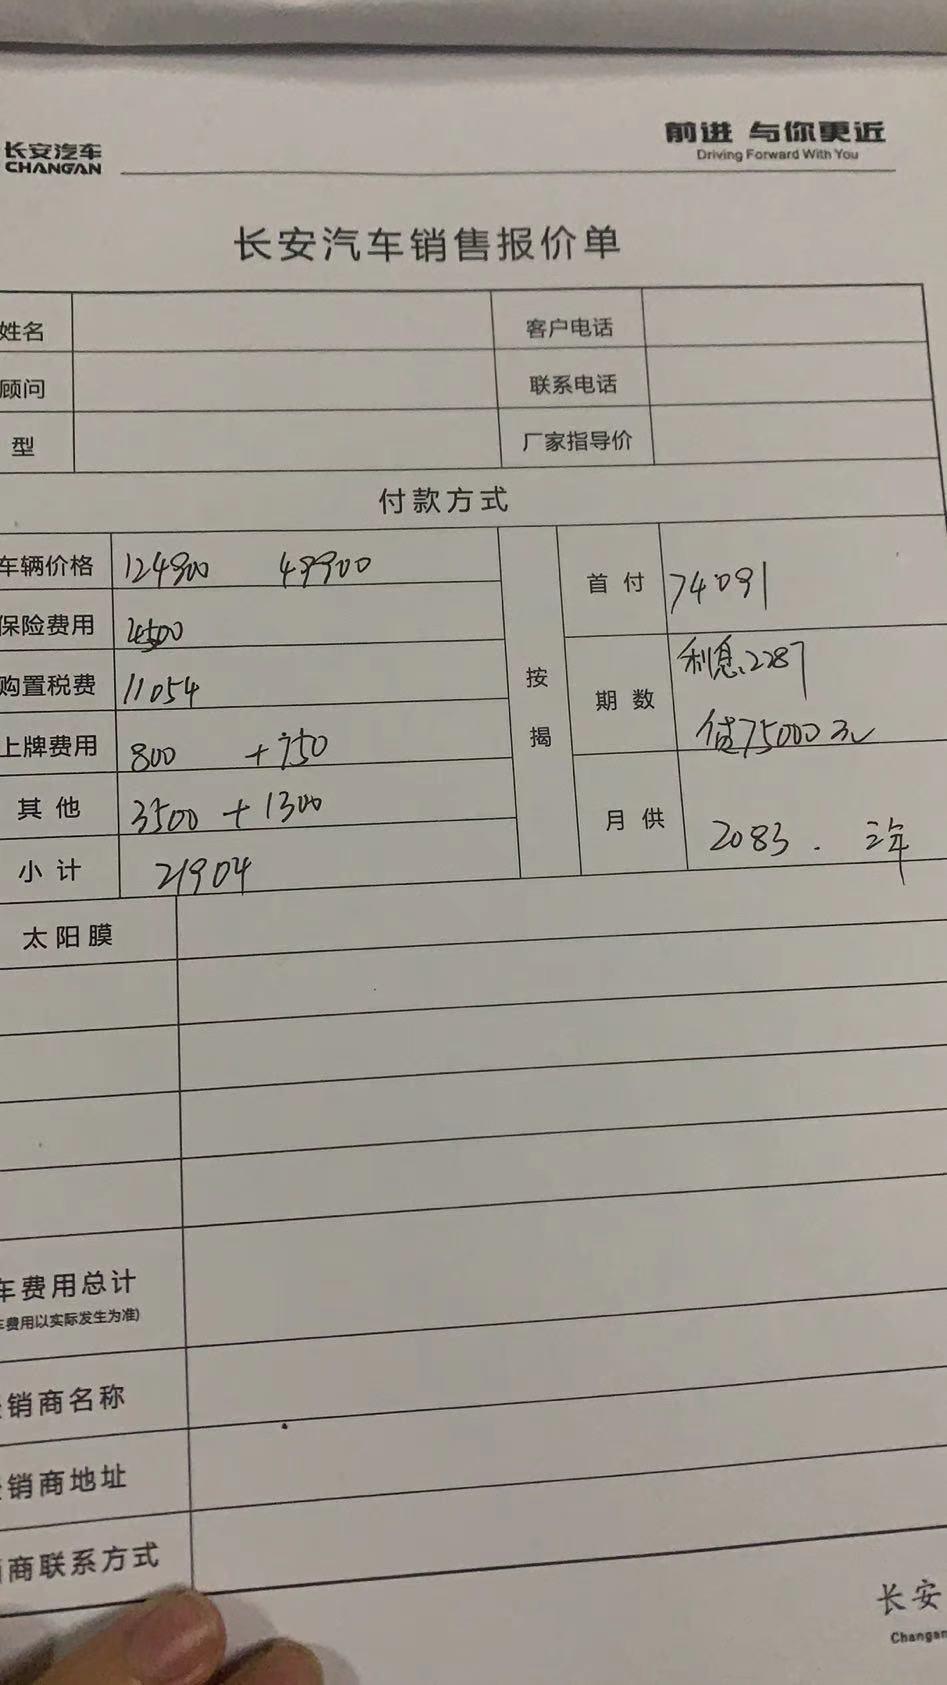 长安汽车
CHANGAN
前进 与你更近
Driving Forward With You
长安汽车销售报价单
姓名
客户电话
顾问
联系电话
型
厂家指导价
付款方式
车辆价格 124900 49900
保险费用 4500
购置税费 11054
上牌费用 800 +750
其他 3500 + 1300
小计 21904
按揭
首付 74091
期数 利息2287
贷75000元
月供 2083. 三年
太阳膜
车费用总计
车费用以实际发生为准)
销商名称
销商地址
商联系方式
长安
Changan